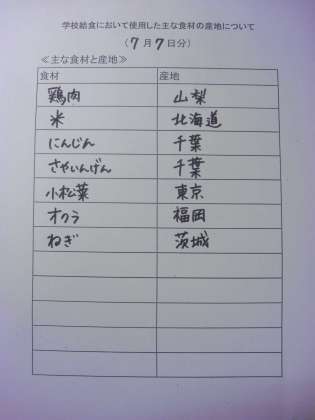 学校給食において使用した主な食材の産地について
(7月7日分)
≪主な食材と産地≫
食材 産地
鶏肉 山梨
米 北海道
にんじん 千葉
さやいんげん 千葉
小松菜 東京
オクラ 福岡
ねぎ 茨城